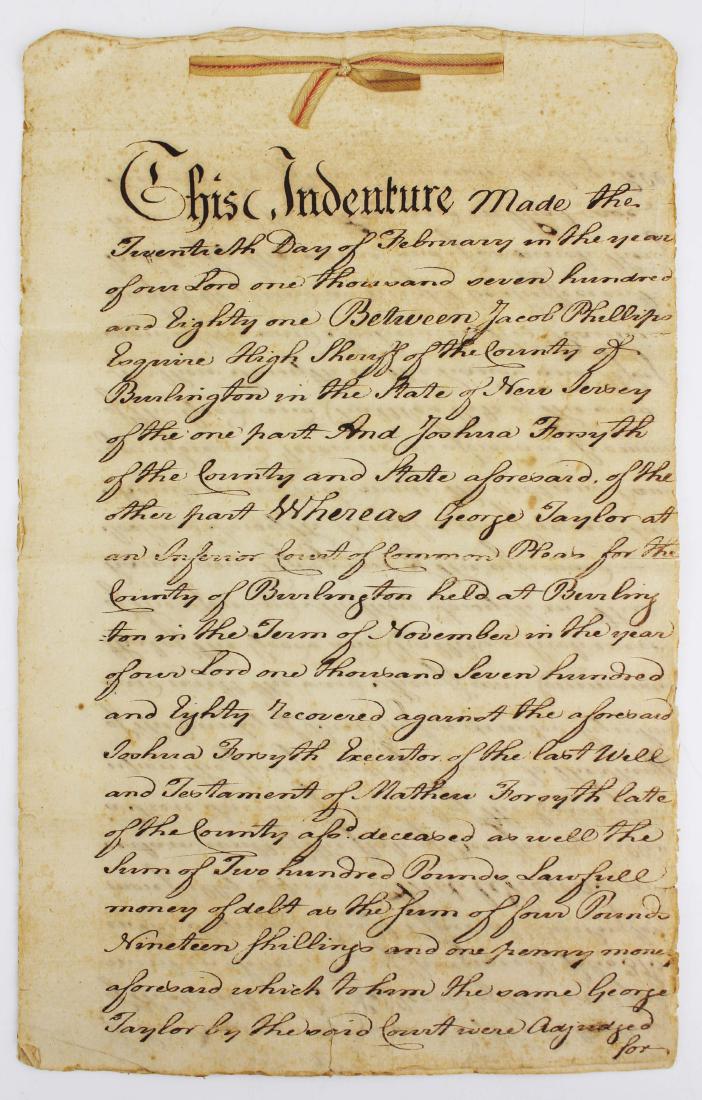 This Indenture Made the
Twentieth Day of February in the year
of our Lord one thousand seven hundred
and Eighty one Between Jacob Phillips
Esquire High Sheriff of the County of
Burlington in the State of New Jersey
of the one part And Joshua Forsyth
of the County and State aforesaid, of the
other part Whereas George Taylor at
an Inferior Court of Common Pleas for the
County of Burlington held at Burling
ton in the Term of November in the year
of our Lord one thousand Seven hundred
and Eighty recovered against the aforesaid
Joshua Forsyth Executor of the last Will
and Testament of Mathew Forsyth late
of the County afsd. deceased as well the
Sum of Two hundred Pounds Lawfull
money of debt as the Sum of four Pounds
Nineteen Shillings and one penny money
aforesaid which to him the same George
Taylor by the said Court were Adjudged
for